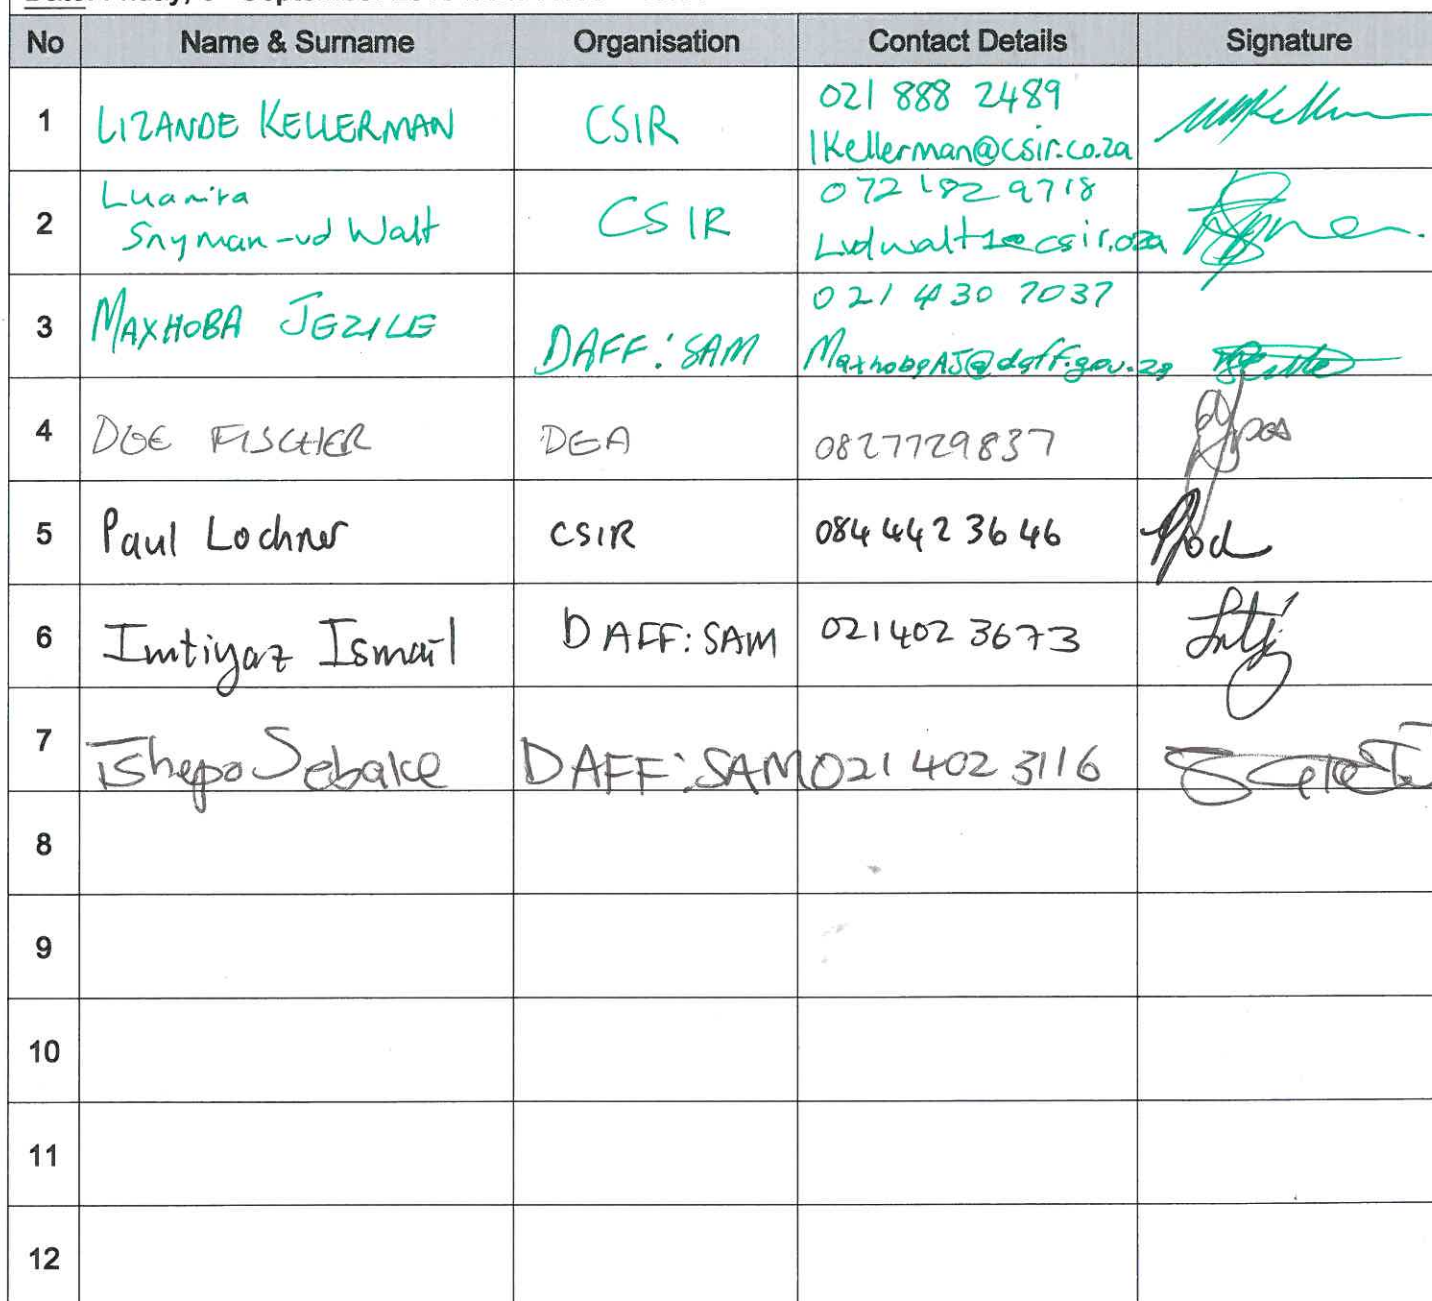 No Name & Surname Organisation Contact Details Signature
1 LIZANDE KELLERMAN CSIR 021 888 2489
lKellerman@csir.co.za
2 Luanita
Snyman-vd Walt CSIR 072 182 9718
Lvdwalt1@csir.co.za
3 MAXHOBA JEZILE DAFF:SAM 021 430 7037
MaxhobaAJ@daff.gov.za
4 DEE FISCHER DEA 0827729837
5 Paul Lochner CSIR 084 442 3646
6 Imtiyaz Ismail DAFF:SAM 021 402 3673
7 Tshepo Sebake DAFF:SAM 021 402 3116
8
9
10
11
12